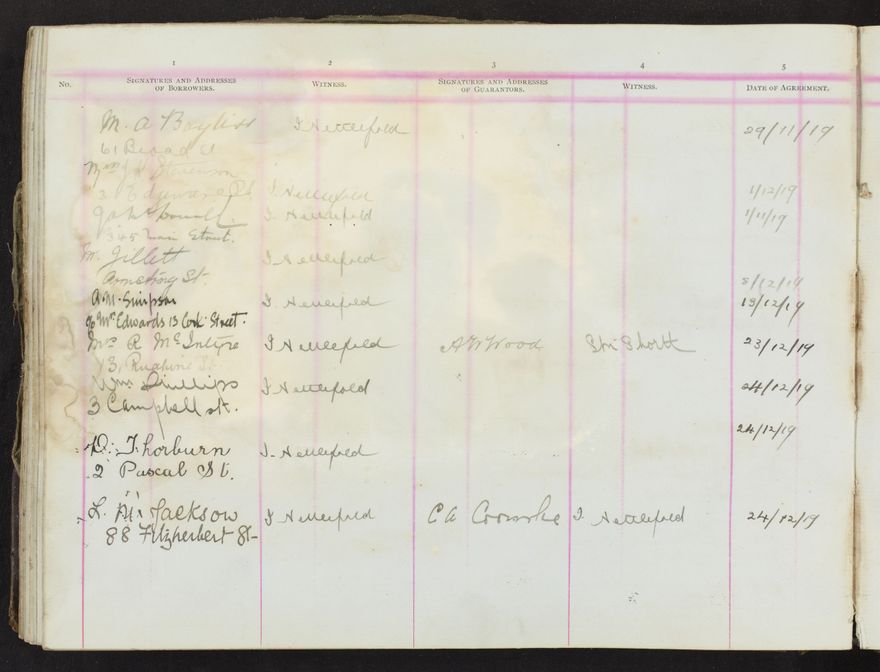 1 2 3 4 5
No. Signatures and Addresses of Borrowers. Witness. Signatures and Addresses of Guarantors. Witness. Date of Agreement.
M. A Bayliss I Nettlefold 29/11/19
61 Broad St
Mrs Stevenson
3 Edgware Rd I Nettlefold 1/12/19
I. Nettlefold 1/11/19
345 Main Street.
M. Gillett I. Nettlefold
Armstrong St. 8/12/19
A. M. Simpson I. Nettlefold 19/12/19
c/o Mrs Edwards 13 Cork Street.
Mrs R McIntyre I Nettlefold A W Wood Short 23/12/19
13, Ruahine St
Wm Phillips I Nettlefold 24/12/19
3 Campbell St.
24/12/19
D. Thorburn I. Nettlefold
2 Pascal St.
L. M. Jackson I Nettlefold C A I. Nettlefold 24/12/19
88 Fitzherbert St